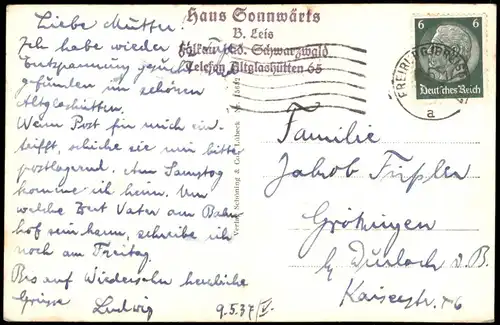 Haus Sonnwärts
B. Leis
Falkau bd. Schwarzwald
Telefon Altglashütten 65
6
Deutsches Reich
FREIBURG (BREISGAU)
a
Liebe Mutter!
Ich habe wieder
Entspannung gesucht
gefunden im schönen
Altglashütten.
Wenn Post für mich ein-
trifft, schicke sie mir bitte
postlagernd. Am Samstag
komme ich heim. Um
welche Zeit Vater am Bahn
hof sein kann, schreibe ich
noch am Freitag.
Bis auf Wiedersehn herzliche
Grüsse
Ludwig
9.5.37
Familie
Jakob Füßler
Grötzingen
by Durlach i. B.
Kaiserstr.